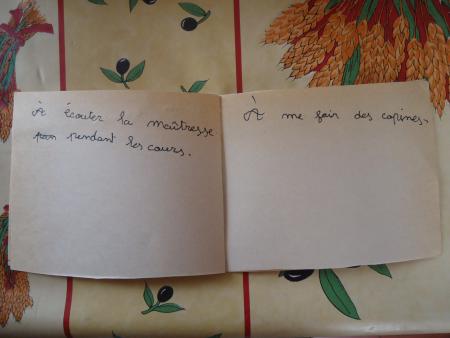 À écouter la maîtresse
pendant les cours.
À me fair des copines.